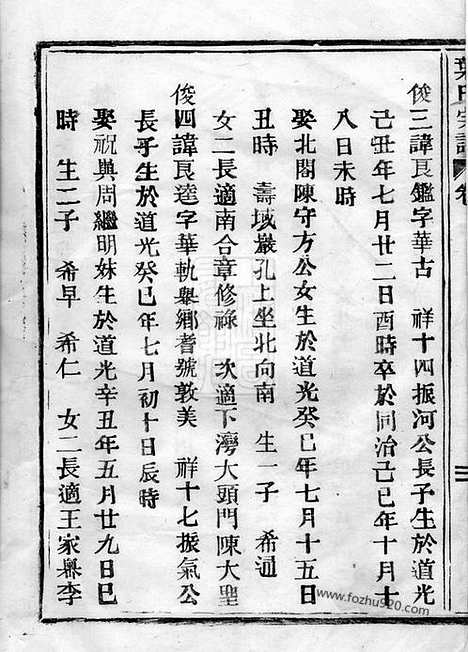 葉氏宗譜 卷
俊三諱良鑑字華古 祥十四振河公長子生於道光
己丑年七月廿二日酉時卒於同治己巳年十月十
八日未時
娶北閣陳守方公女生於道光癸巳年七月十五日
丑時 壽域巖孔上坐北向南 生一子 希通
女二長適南合章修祿 次適下灣大頭門陳大聖
俊四諱良達字華軌舉鄉耆號敦美 祥十七振氣公
長子生於道光癸巳年七月初十日辰時
娶祝輿周繼明妹生於道光辛丑年五月廿九日巳
時 生二子 希早 希仁 女二長適王家嶴李
www.fozhu920.com